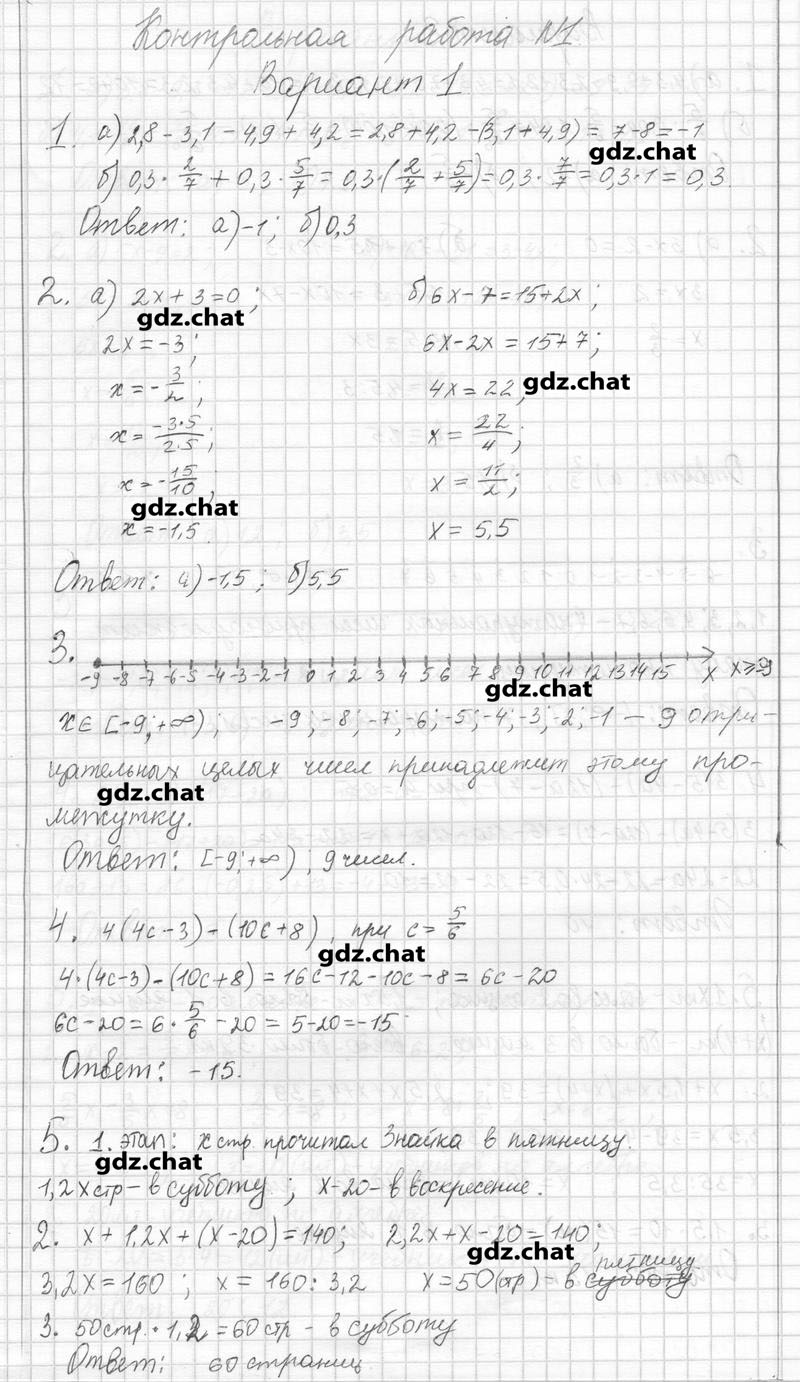 Контрольная работа №1.
Вариант 1
1. а) 2,8 - 3,1 - 4,9 + 4,2 = 2,8 + 4,2 - (3,1 + 4,9) = 7 - 8 = -1
gdz.chat
б) 0,3 · 2/7 + 0,3 · 5/7 = 0,3 · (2/7 + 5/7) = 0,3 · 7/7 = 0,3 · 1 = 0,3.
Ответ: а) -1; б) 0,3
2. а) 2x + 3 = 0; б) 6x - 7 = 15 + 2x;
gdz.chat
2x = -3; 6x - 2x = 15 + 7;
x = -3/2; 4x = 22;
gdz.chat
x = -3·5/2·5; x = 22/4;
x = -15/10; x = 11/2;
gdz.chat
x = -1,5. x = 5,5
Ответ: а) -1,5; б) 5,5
3. -9 -8 -7 -6 -5 -4 -3 -2 -1 0 1 2 3 4 5 6 7 8 9 10 11 12 13 14 15 x x ⩾ -9
gdz.chat
x ∈ [-9; +∞); -9; -8; -7; -6; -5; -4; -3; -2; -1 — 9 отри-
цательных целых чисел принадлежит этому про-
gdz.chat
межутку.
Ответ: [-9; +∞); 9 чисел.
4. 4(4c - 3) - (10c + 8), при c = 5/6
gdz.chat
4·(4c - 3) - (10c + 8) = 16c - 12 - 10c - 8 = 6c - 20
6c - 20 = 6 · 5/6 - 20 = 5 - 20 = -15
Ответ: -15.
5. 1. этап: x стр. прочитал Знайка в пятницу.
gdz.chat
1,2x стр - в субботу; x - 20 - в воскресение.
2. x + 1,2x + (x - 20) = 140; 2,2x + x - 20 = 140;
gdz.chat
пятницу
3,2x = 160; x = 160 : 3,2 x = 50 (стр) - в субботу
3. 50 стр. · 1,2 = 60 стр - в субботу
Ответ: 60 страниц